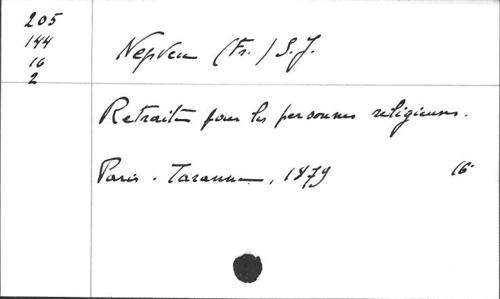 205
144
16
2
Nepveu (Fr.) S.J.
Retraite pour les personnes religieuses.
Paris. Taranne, 1879 16°